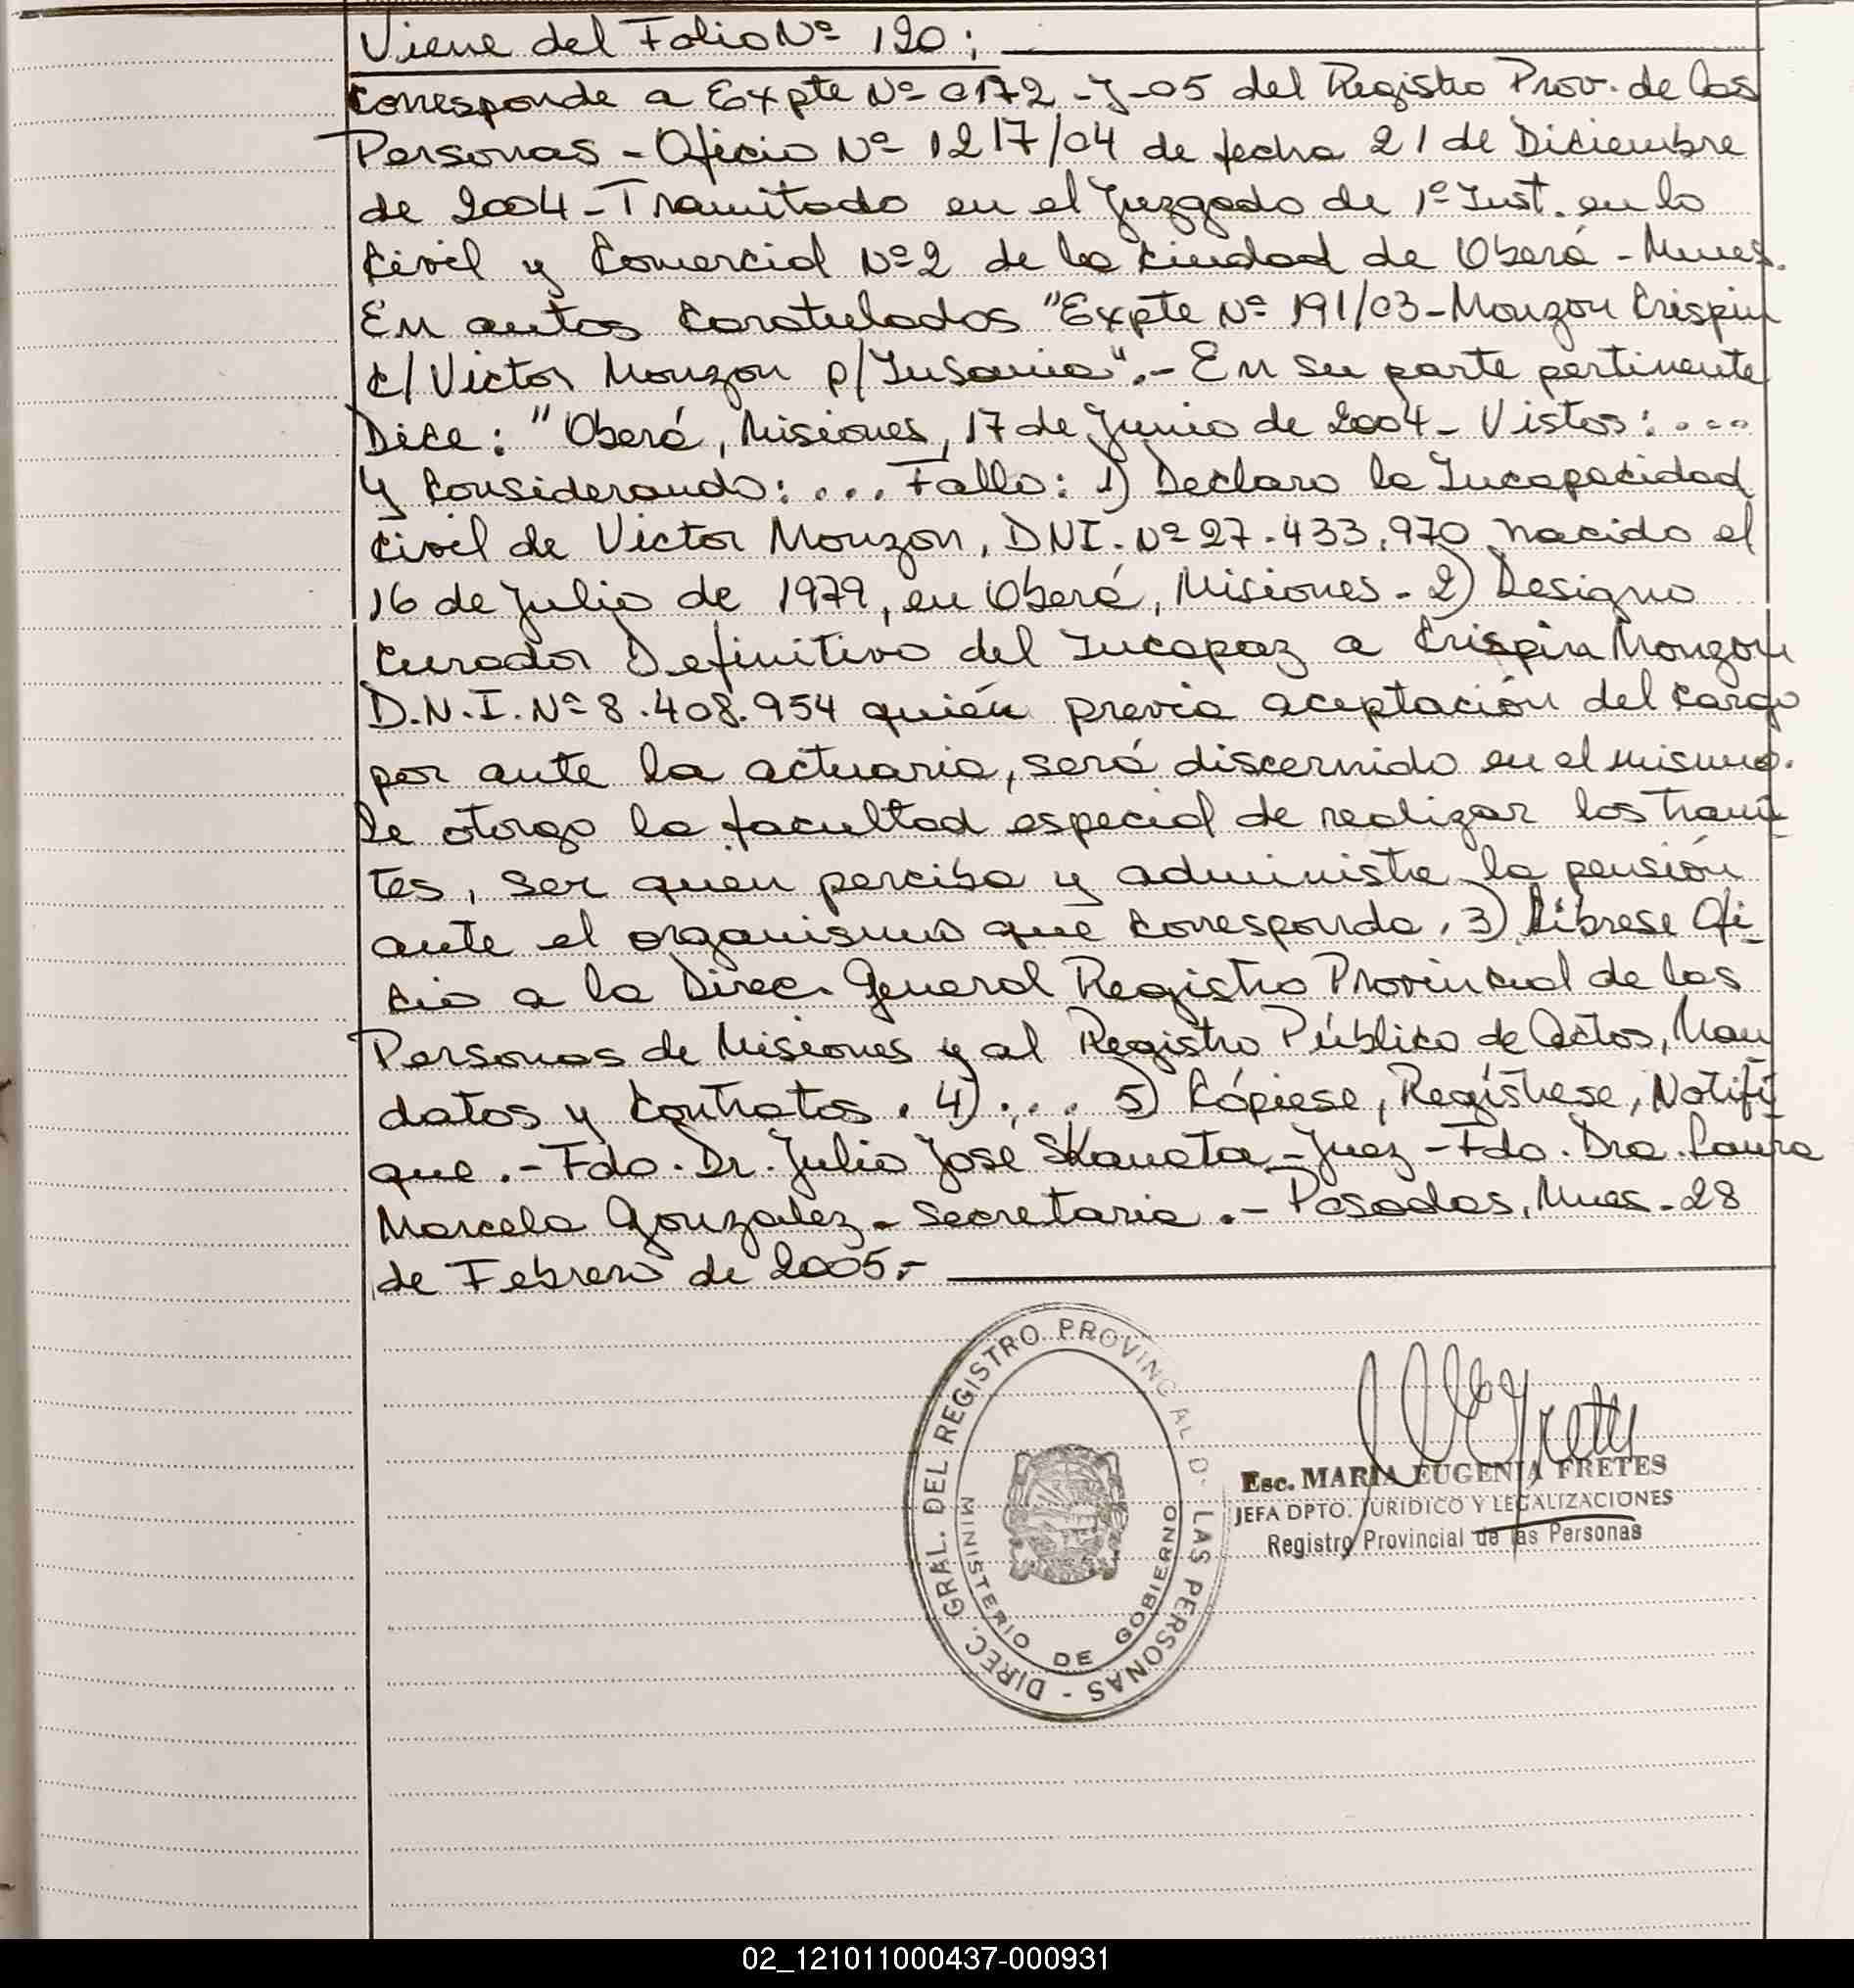 Viene del Folio Nº 120:
Corresponde a Expte Nº 0172-J-05 del Registro Prov. de las
Personas - Oficio Nº 1217/04 de fecha 21 de Diciembre
de 2004 - Tramitado en el Juzgado de 1º Inst. en lo
Civil y Comercial Nº 2 de la Ciudad de Oberá - Mnes.
En autos Caratulados "Expte Nº 191/03 - Monzon Crispin
c/ Victor Monzon p/Insania".- En su parte pertinente
Dice: "Oberá, Misiones, 17 de Junio de 2004 - Vistos: ....
Y Considerando: ... Fallo: 1) Declaro la Incapacidad
Civil de Victor Monzon, DNI. Nº 27.433.970 nacido el
16 de Julio de 1979, en Oberá, Misiones - 2) Designo
Curador Definitivo del Incapaz a Crispin Monzon
D.N.I. Nº 8.408.954 quién previa aceptación del Cargo
por ante la actuaria, será discernido en el mismo.
Le otorgo la facultad especial de realizar los trami-
tes, ser quien perciba y administre la pensión
ante el organismo que corresponda. 3) Líbrese Ofi-
cio a la Direc. General Registro Provincial de las
Personas de Misiones y al Registro Público de Actos, Man
datos y Contratos. 4) ... 5) Cópiese, Regístrese, Notifí
que.- Fdo. Dr. Julio José Skanata - Juez - Fdo. Dra. Laura
Marcela Gonzalez - Secretaria.- Posadas, Mnes. 28
de Febrero de 2005.-
DIREC. GRAL. DEL REGISTRO PROVINCIAL D LAS PERSONAS -
MINISTERIO DE GOBIERNO
Esc. MARIA EUGENIA FRETES
JEFA DPTO. JURIDICO Y LEGALIZACIONES
Registro Provincial de las Personas
02_121011000437-000931